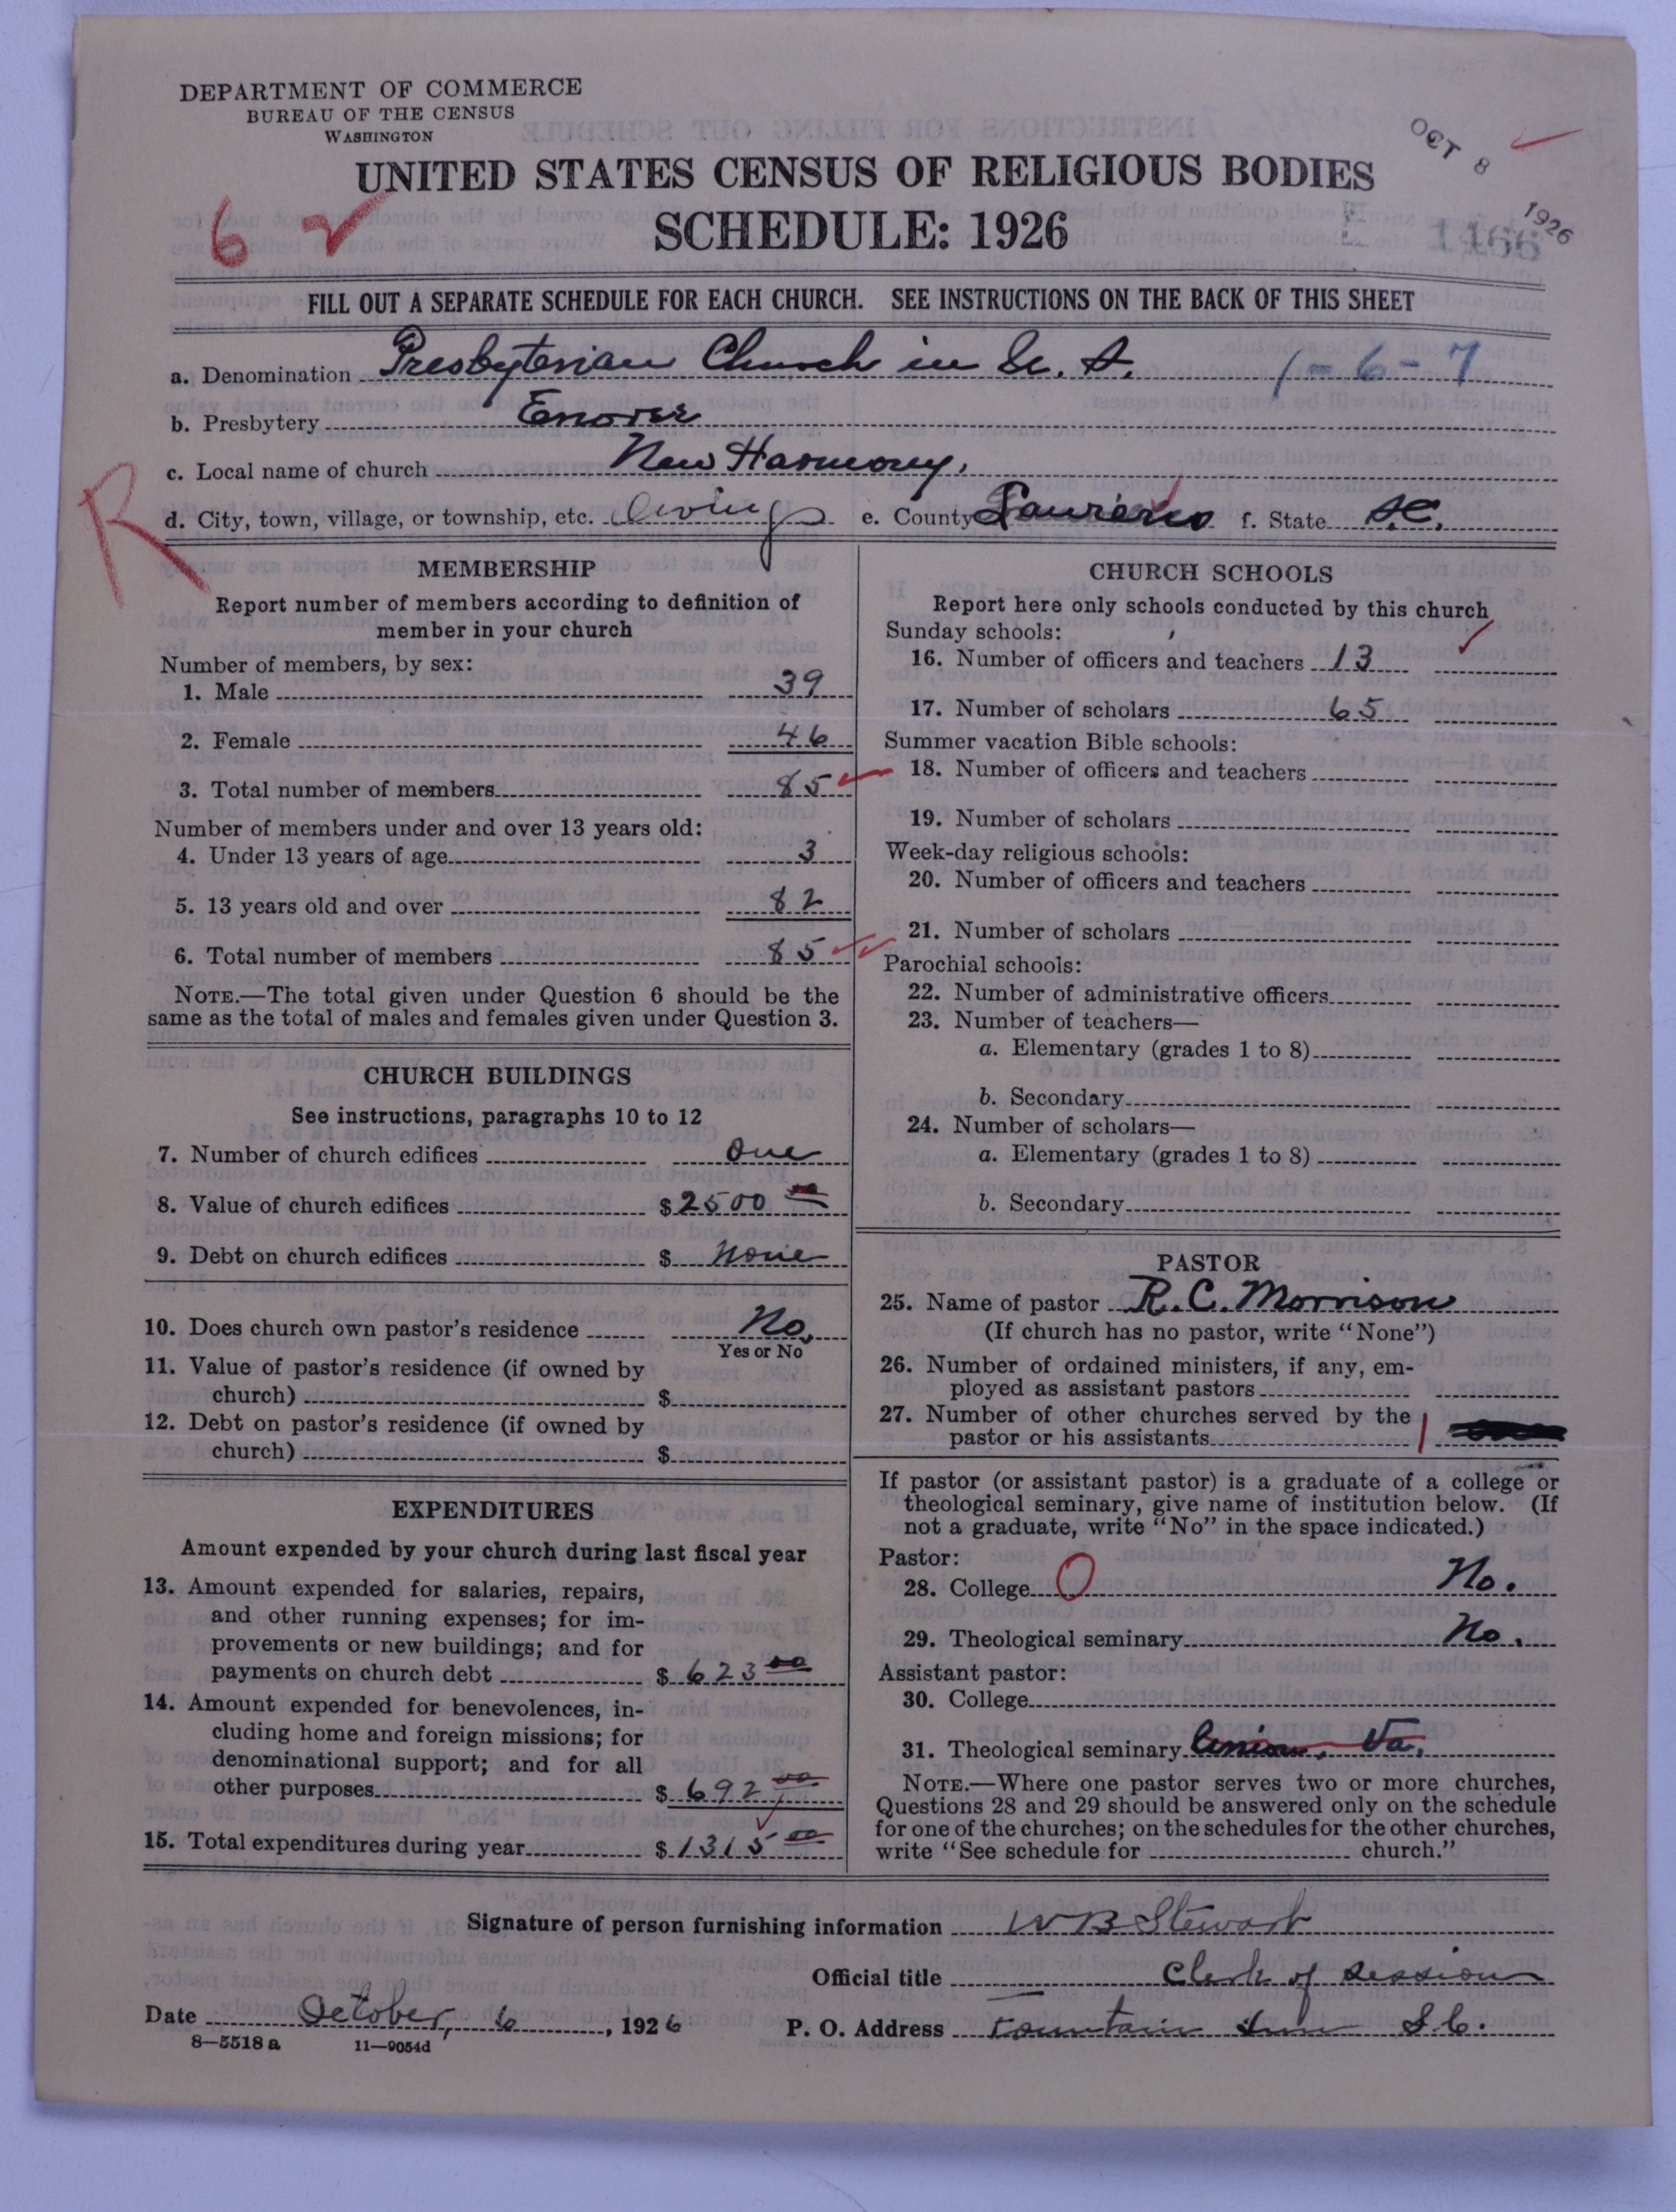 DEPARTMENT OF COMMERCE
BUREAU OF THE CENSUS
WASHINGTON
OCT 8 1926
UNITED STATES CENSUS OF RELIGIOUS BODIES
6
SCHEDULE: 1926
1166
FILL OUT A SEPARATE SCHEDULE FOR EACH CHURCH. SEE INSTRUCTIONS ON THE BACK OF THIS SHEET
a. Denomination Presbyterian Church in U. S. 1-6-7
b. Presbytery Enoree
c. Local name of church New Harmony.
R
d. City, town, village, or township, etc. Owings e. County Laurens f. State S.C.
MEMBERSHIP
Report number of members according to definition of
member in your church
Number of members, by sex:
1. Male 39
2. Female 46
3. Total number of members 85
Number of members under and over 13 years old:
4. Under 13 years of age 3
5. 13 years old and over 82
6. Total number of members 85
NOTE.—The total given under Question 6 should be the
same as the total of males and females given under Question 3.
CHURCH BUILDINGS
See instructions, paragraphs 10 to 12
7. Number of church edifices One
8. Value of church edifices $ 2500 00
9. Debt on church edifices $ None
10. Does church own pastor's residence No.
Yes or No
11. Value of pastor's residence (if owned by
church) $
12. Debt on pastor's residence (if owned by
church) $
EXPENDITURES
Amount expended by your church during last fiscal year
13. Amount expended for salaries, repairs,
and other running expenses; for im-
provements or new buildings; and for
payments on church debt $ 623 00
14. Amount expended for benevolences, in-
cluding home and foreign missions; for
denominational support; and for all
other purposes $ 692 00
15. Total expenditures during year $ 1315 00
CHURCH SCHOOLS
Report here only schools conducted by this church
Sunday schools:
16. Number of officers and teachers 13
17. Number of scholars 65
Summer vacation Bible schools:
18. Number of officers and teachers
19. Number of scholars
Week-day religious schools:
20. Number of officers and teachers
21. Number of scholars
Parochial schools:
22. Number of administrative officers
23. Number of teachers—
a. Elementary (grades 1 to 8)
b. Secondary
24. Number of scholars—
a. Elementary (grades 1 to 8)
b. Secondary
PASTOR
25. Name of pastor R. C. Morrison
(If church has no pastor, write "None")
26. Number of ordained ministers, if any, em-
ployed as assistant pastors
27. Number of other churches served by the
pastor or his assistants 1
If pastor (or assistant pastor) is a graduate of a college or
theological seminary, give name of institution below. (If
not a graduate, write "No" in the space indicated.)
Pastor:
28. College O No.
29. Theological seminary No.
Assistant pastor:
30. College
31. Theological seminary Union, Va.
NOTE.—Where one pastor serves two or more churches,
Questions 28 and 29 should be answered only on the schedule
for one of the churches; on the schedules for the other churches,
write "See schedule for church."
Signature of person furnishing information W B Stewart
Official title Clerk of Session
Date October, 6, 1926 P. O. Address Fountain Inn S.C.
8—5518 a 11—9054d